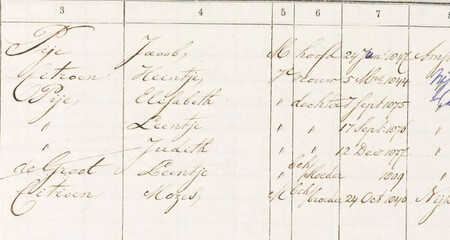 3 4 5 6 7 8
Pije Jacob M hoofd 24 Juni 1847 Ams
Citroen Heentje V vrouw 5 Nov 1844
Pije Elisabeth " dochter 7 Sept 1875
" Leentje " " 17 Sept 1876
" Judith " " 12 Dec 1877 "
de Groot Leentje " beh Moeder 1809 "
Citroen Mozes M beh broeder 24 Oct 1840 Nij